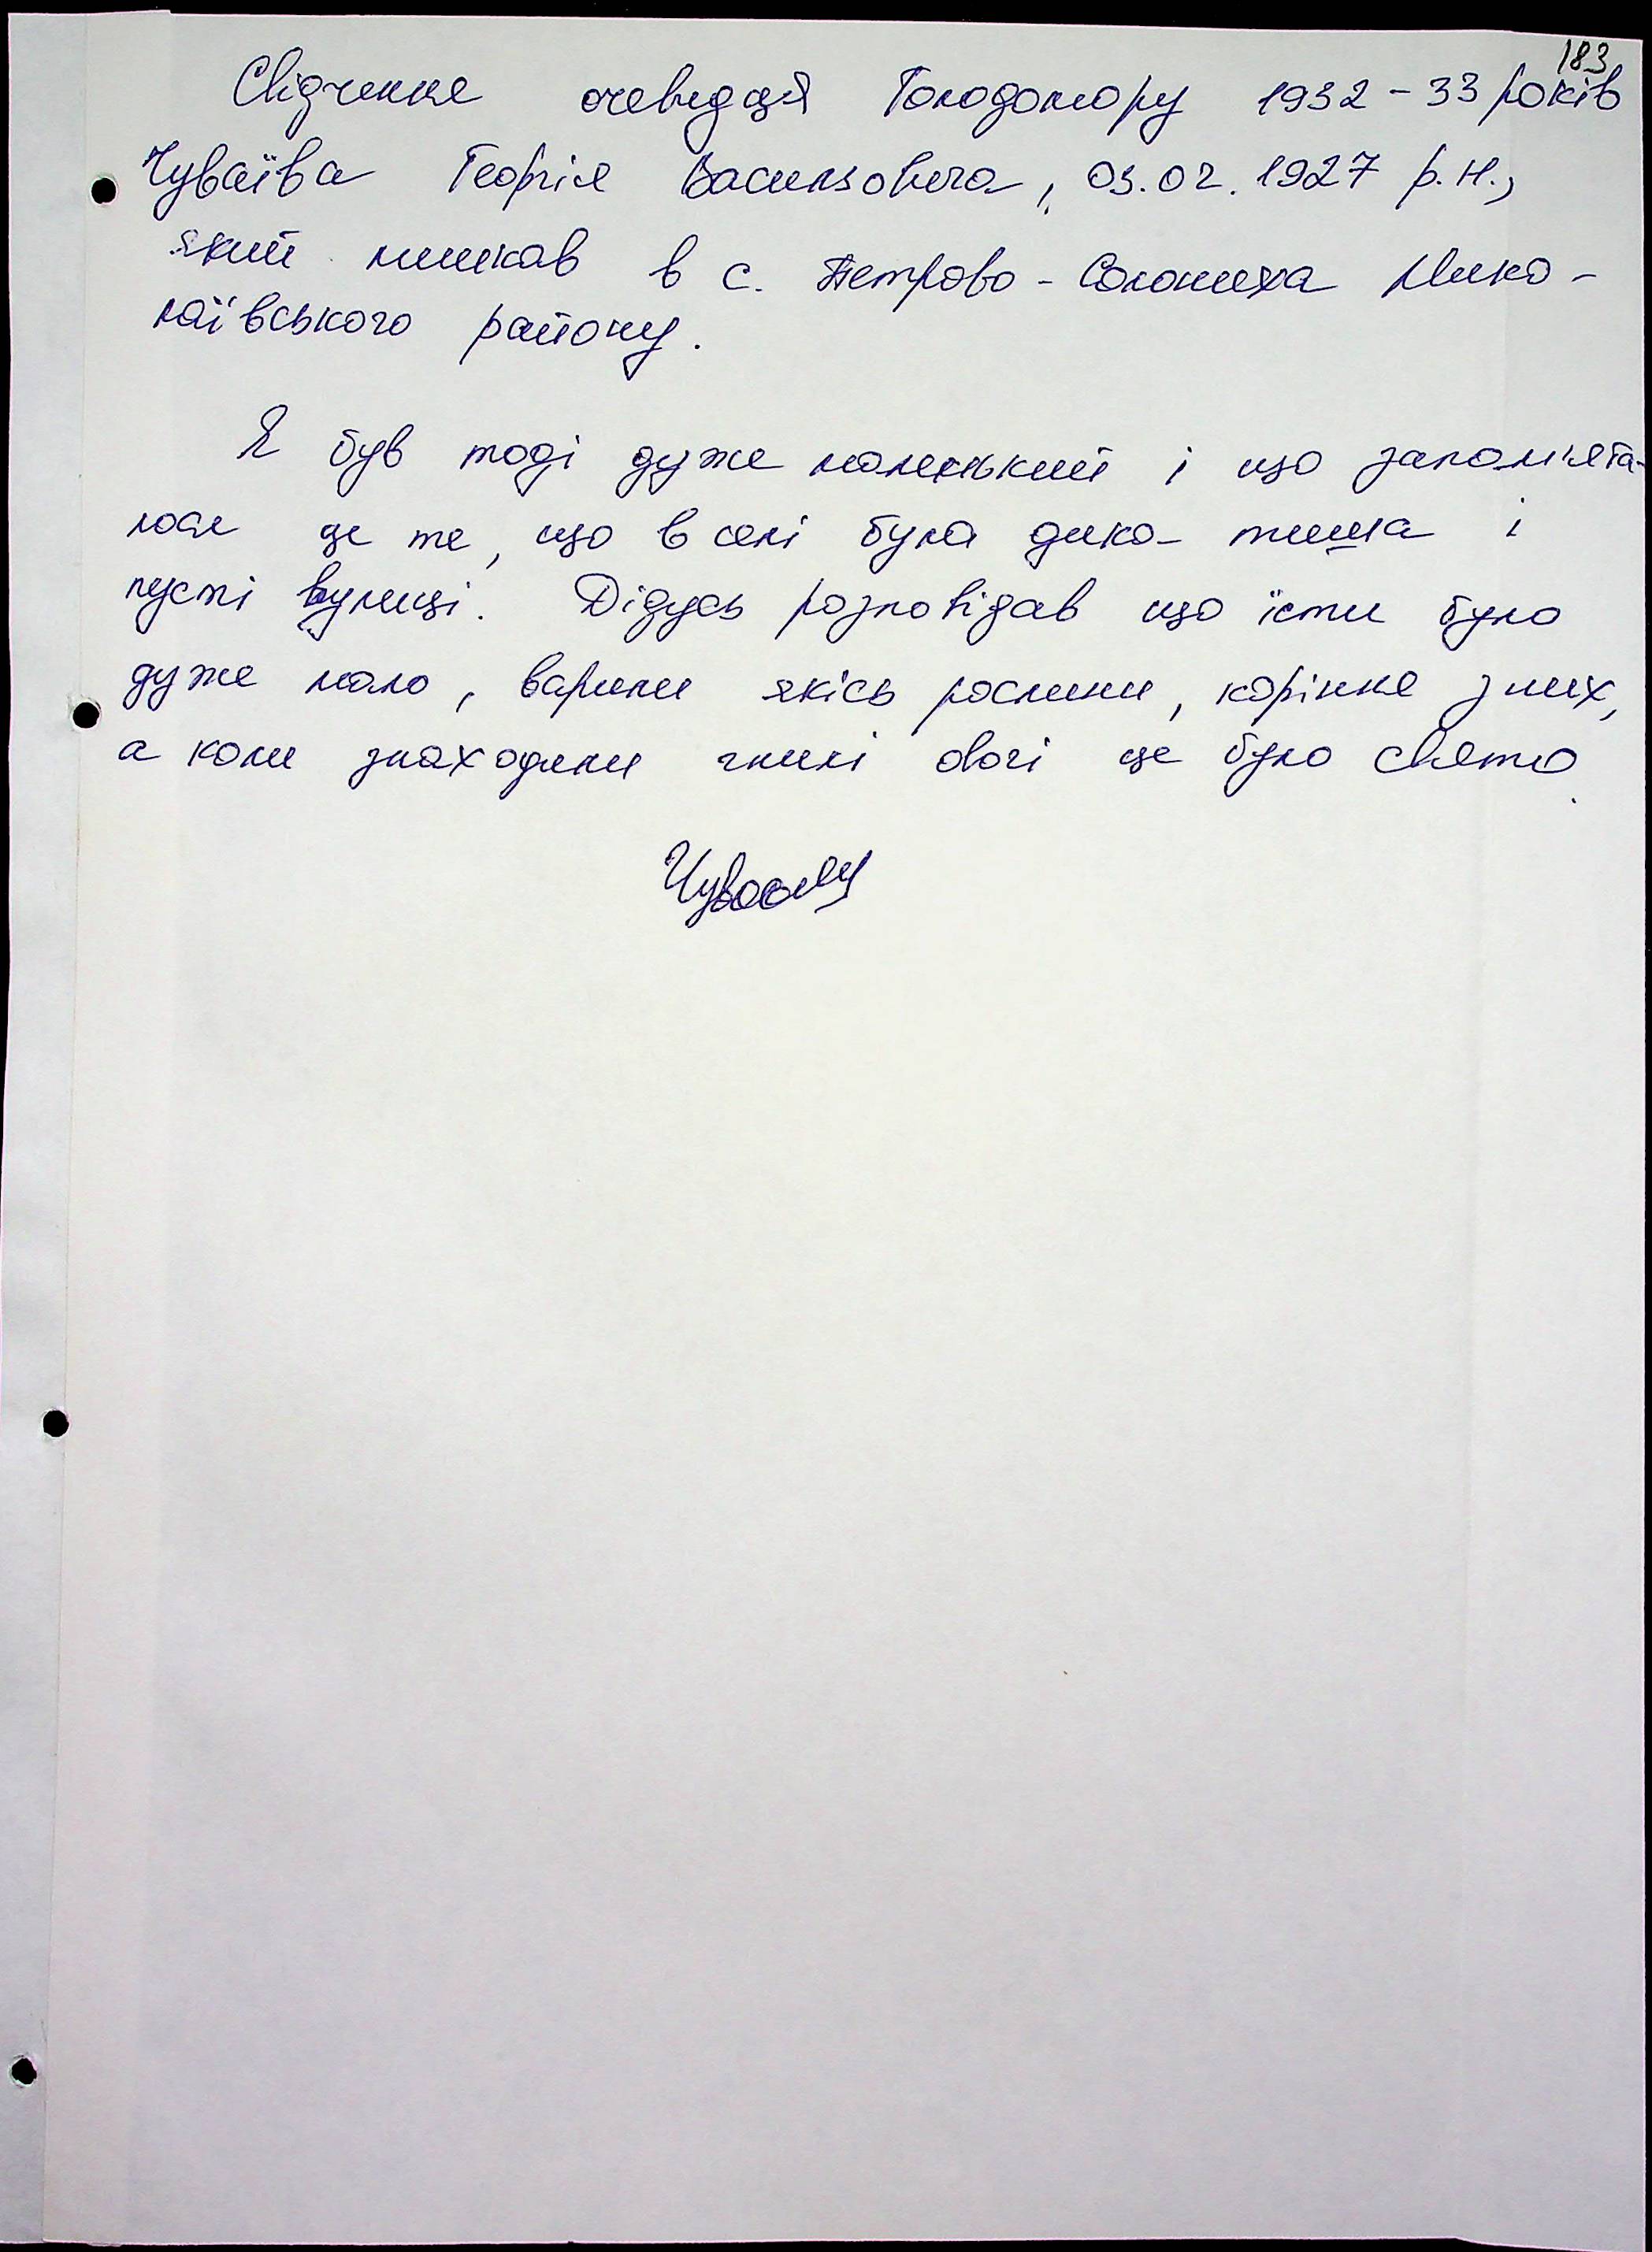 183
Свідчення очевидця Голодомору 1932-33 років
Чуваїва Георгія Васильовича, 03.02.1927 р.н.,
який мешкав в с. Петрово-Солониха Мико-
лаївського району.
Я був тоді дуже маленький і що запам'ята-
лося це те, що в селі була дика тиша і
пусті вулиці. Дідусь розповідав що їсти було
дуже мало, варили якісь рослини, коріння з них,
а коли знаходили гнилі овочі це було свято.